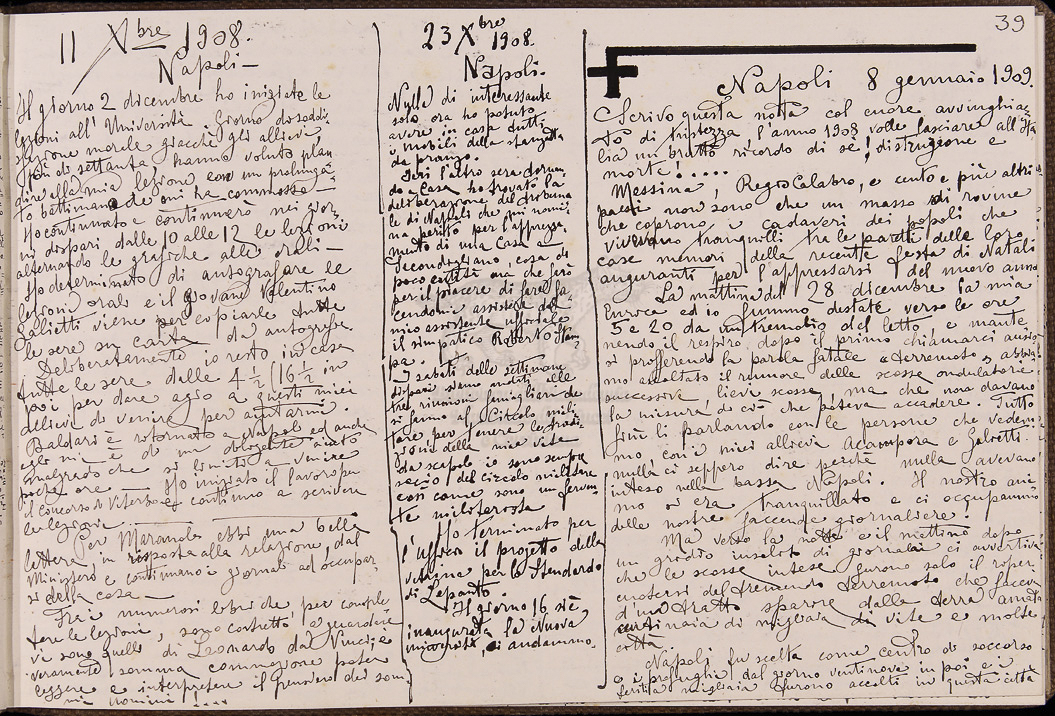 39
11 Xbre 1908.
Napoli—
Il giorno 2 dicembre ho iniziate le
lezioni all'Università. Giorno di soddi-
sfazione morale giacchè gli allievi
più di settanta hanno voluto plau
dire alla mia lezione con un prolunga
to battimano che mi ha commosso—
Ho continuato e continuerò nei gior-
ni dispari dalle 10 alle 12 le lezioni
alternando le grafiche alle orali—
Ho determinato di autografare le
lezioni orali e il giovane Valentino
Galietti viene per copiarle tutte
le sere su carta da autografie
Deliberatamente io resto in casa
tutte le sere dalle 4 ½ (16 ½ in
poi per dare agio a questi miei
allievi di venire per aiutarmi.
Baldari è ritornato a Napoli ed anche
egli mi è di un aiuto
malgrado che si limiti a venire
poche ore— Ho iniziato il lavoro per
il concorso di Viterbo e continuo a scrivere
le lezioni
Per Maranola ebbi una bella
lettera, in risposta alla relazione, dal
Ministero e continuano i giornali ad occupar
si della cosa—
Fra i numerosi libri che per comple
tare le lezioni, sono costretto a guardare
vi sono quelli di Leonardo da Vinci; e
veramente somma commozione poter
leggere e interpretare il pensiero dei som
mi uomini ! ....
23 Xbre 1908.
Napoli.
Nulla di interessante
solo ora ho potuto
avere in casa tutti
i mobili della stanzetta
da pranzo.
Ieri l'altro sera tornan
do a casa ho trovato la
deliberazione del tribuna
le di Napoli che mi nomi-
na perito per l'apprezza-
mento di una casa a
Secondigliano, cosa di
poco entità ma che farò
per il piacere di fare le fa-
cendomi assistere dal
mio assistente ufficiale
il simpatico Roberto Stam
pa.
I sabati delle settimane
dispari siamo andati alle
tre riunioni famigliari che
si fanno al Circolo mili-
tare per tenere le tradi-
zioni della mia vita
da scapolo io sono sempre
socio del circolo militare
così come sono un ferven-
te militarista
Ho terminato per
l'ufficio il progetto della
vetrina per lo Stendardo
di Lepanto.
Il giorno 16 s'è
inaugurata la Nuova
università, ci andammo.
Napoli 8 gennaio 1909.
Scrivo questa nota col cuore avvinghia-
to di tristezza l'anno 1908 volle lasciare all'Ita
lia un brutto ricordo di sè! distruzione e
morte! .....
Messina, Reggio Calabro, e cento e più altri
paesi non sono che un masso di rovine
che coprono i cadaveri dei popoli che
vivevano tranquilli tra le pareti delle loro
case memori della recente festa di Natali
auguranti per l'appressarsi del nuovo anno
La mattina del 28 dicembre la mia
Enrica ed io fummo destati verso le ore
5 e 20 da un tremolio del letto, e mante
nendo il respiro dopo il primo chiamarci ansioso
si profferendo la parola fatale "terremoto" abbia
mo ascoltato il rumore delle scosse ondulatorie
successive lievi scosse, ma che non davano
la misura di ciò che poteva accadere. Tutto
finì lì parlando con le persone che vedem-
mo, coi miei allievi Acampora e Galietti.
nulla ci seppero dire perchè nulla avevano
inteso nella bassa Napoli. Il nostro ani
mo si era tranquillato e ci occupammo
delle nostre faccende giornaliere!
Ma verso la notte e il mattino dopo
un grido insolito di giornalai ci avvertiva
che le scosse intese furono solo il riper
cuotersi del tremendo terremoto che faceva
d'un tratto sparire dalla terra amata
centinaia di migliaia di vite e molte
città
Napoli fu scelta come centro di soccorso
e i profughi dal giorno ventinove in poi e i
feriti a migliaia furono accolti in questa città